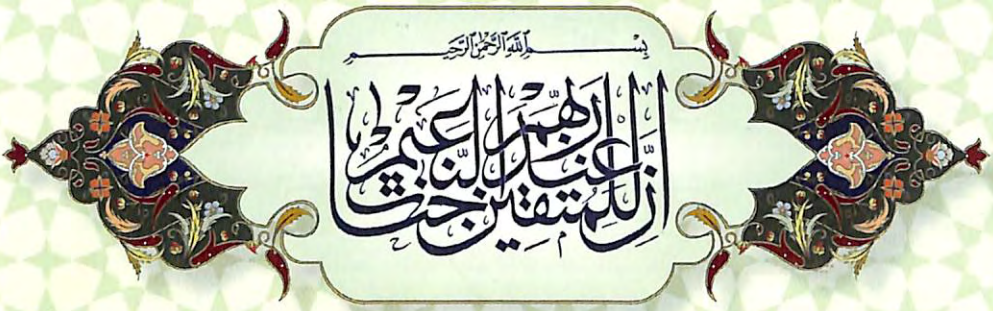 بِسْمِ اللَّهِ الرَّحْمَٰنِ الرَّحِيمِ
إِنَّ لِلْمُتَّقِينَ عِنْدَ رَبِّهِمْ جَنَّاتِ النَّعِيمِ